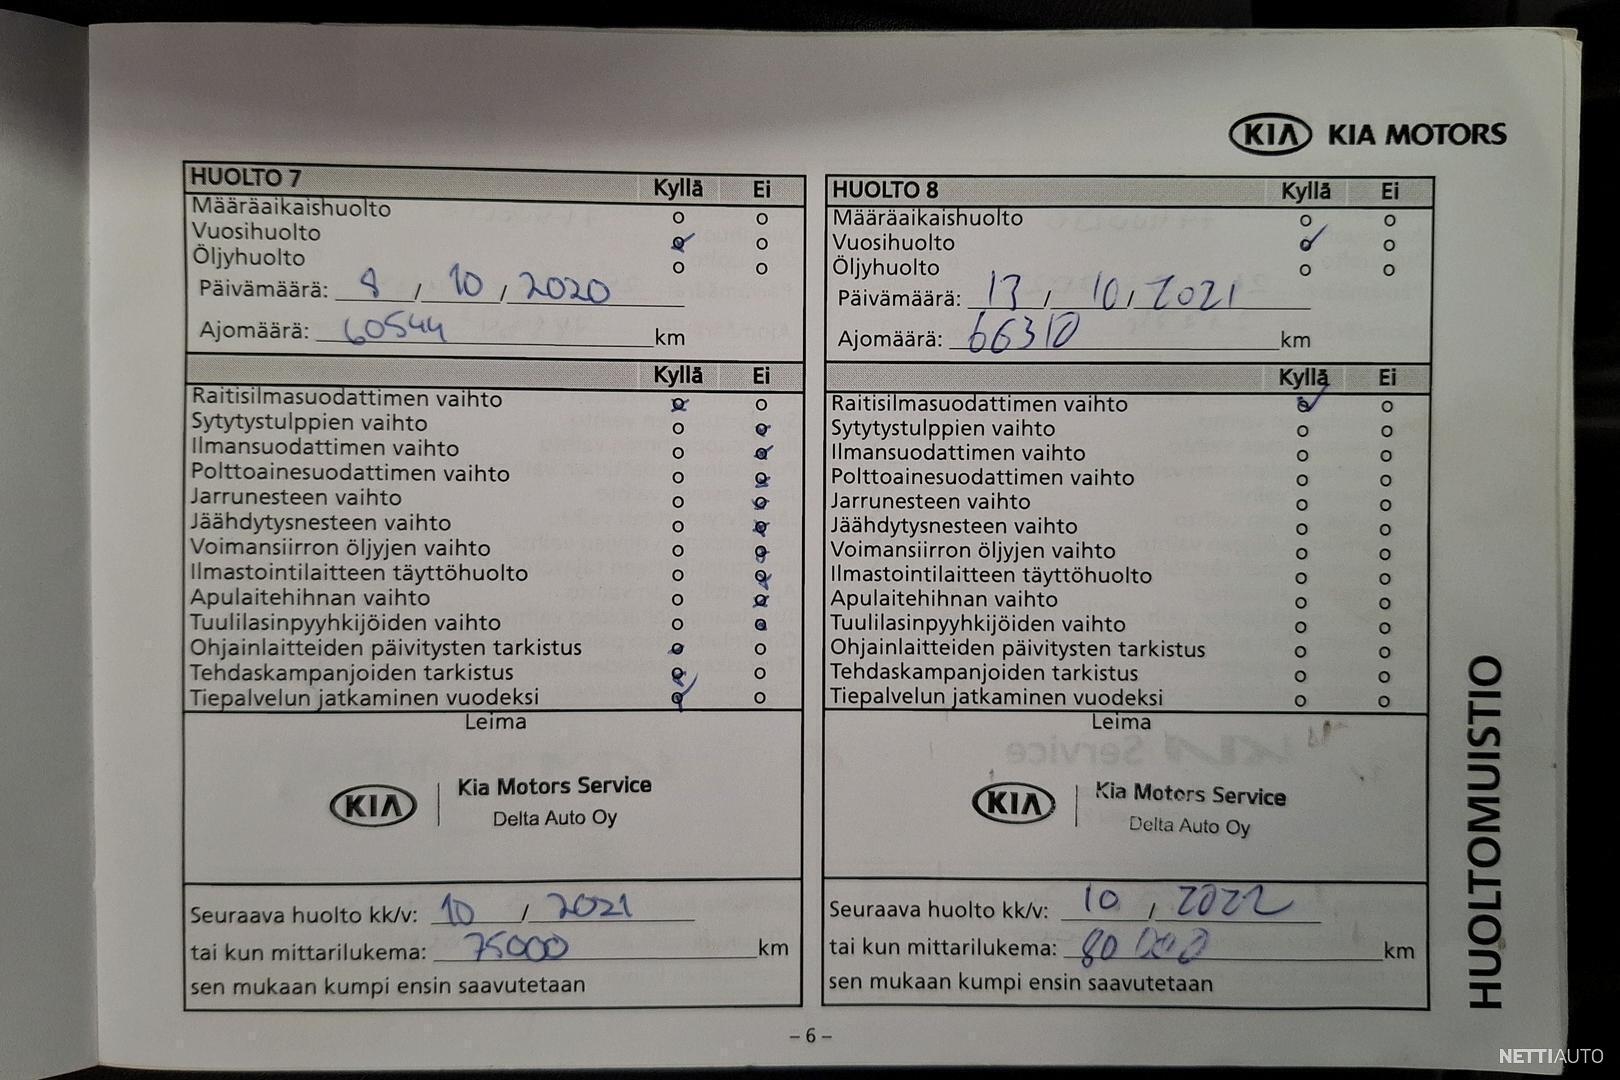 KIA KIA MOTORS
HUOLTO 7 Kyllä Ei
Määräaikaishuolto
Vuosihuolto
Öljyhuolto
Päivämäärä: 8 / 10 / 2020
Ajomäärä: 60544 km
Kyllä Ei
Raitisilmasuodattimen vaihto
Sytytystulppien vaihto
Ilmansuodattimen vaihto
Polttoainesuodattimen vaihto
Jarrunesteen vaihto
Jäähdytysnesteen vaihto
Voimansiirron öljyjen vaihto
Ilmastointilaitteen täyttöhuolto
Apulaitehihnan vaihto
Tuulilasinpyyhkijöiden vaihto
Ohjainlaitteiden päivitysten tarkistus
Tehdaskampanjoiden tarkistus
Tiepalvelun jatkaminen vuodeksi
Leima
KIA Kia Motors Service
Delta Auto Oy
Seuraava huolto kk/v: 10 / 2021
tai kun mittarilukema: 75000 km
sen mukaan kumpi ensin saavutetaan
HUOLTO 8 Kyllä Ei
Määräaikaishuolto
Vuosihuolto
Öljyhuolto
Päivämäärä: 13 / 10 / 2021
Ajomäärä: 66310 km
Kyllä Ei
Raitisilmasuodattimen vaihto
Sytytystulppien vaihto
Ilmansuodattimen vaihto
Polttoainesuodattimen vaihto
Jarrunesteen vaihto
Jäähdytysnesteen vaihto
Voimansiirron öljyjen vaihto
Ilmastointilaitteen täyttöhuolto
Apulaitehihnan vaihto
Tuulilasinpyyhkijöiden vaihto
Ohjainlaitteiden päivitysten tarkistus
Tehdaskampanjoiden tarkistus
Tiepalvelun jatkaminen vuodeksi
Leima
KIA Kia Motors Service
Delta Auto Oy
Seuraava huolto kk/v: 10 / 2022
tai kun mittarilukema: 80 000 km
sen mukaan kumpi ensin saavutetaan
HUOLTOMUISTIO
– 6 –
NETTIAUTO